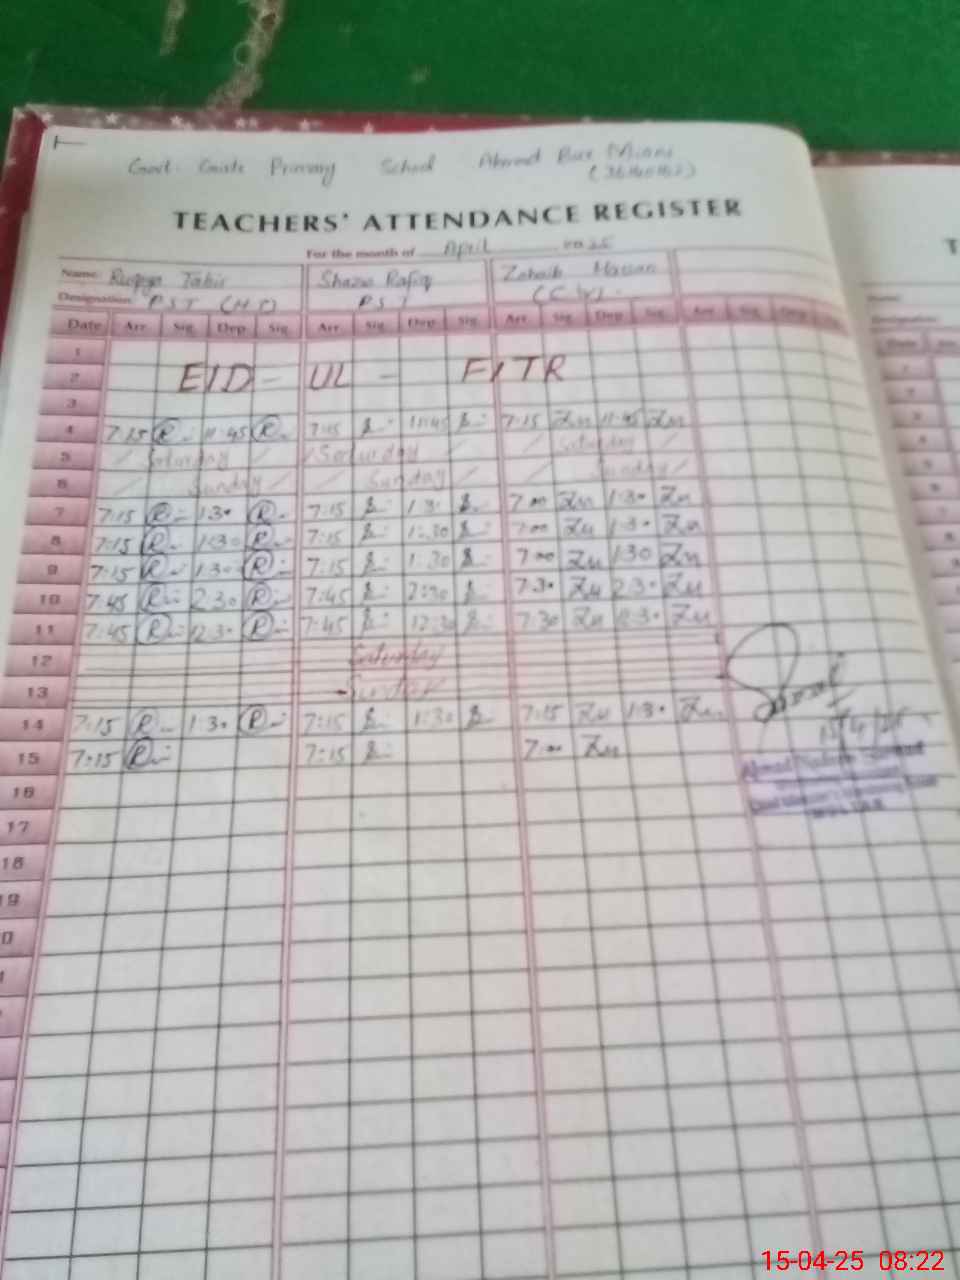 Govt. Girls Primary School Ahmad Bux Miani
TEACHERS' ATTENDANCE REGISTER
For the month of April 2025
Name: Ruqqya Tahir Shazia Rafiq Zohaib Hassan
Designation P.S.T (H.T) P.S.T (C.IV).
Date Arr. Sig. Dep. Sig. Arr. Sig. Dep. Sig. Arr. Sig. Dep. Sig. Arr. Sig.
1
2 EID - UL - FITR
3
4 7:15 R 11:45 R 7:15 11:45 7:15 Zu 11:45 Zu
5 Saturday Saturday Saturday
6 Sunday Sunday Sunday
7 7:15 R 1:30 R 7:15 1:30 7:00 Zu 1:30 Zu
8 7:15 R 1:30 R 7:15 1:30 7:00 Zu 1:30 Zu
9 7:15 R 1:30 R 7:15 1:30 7:00 Zu 1:30 Zu
10 7:45 R 2:30 R 7:45 2:30 7:30 Zu 2:30 Zu
11 7:45 R 12:30 R 7:45 12:30 7:30 Zu 12:30 Zu
12 Saturday
13 Sunday
14 7:15 R 1:30 R 7:15 1:30 7:15 Zu 1:30 Zu
15 7:15 R 7:15 7:00 Zu
15/4/25
16
17
18
19
15-04-25 08:22